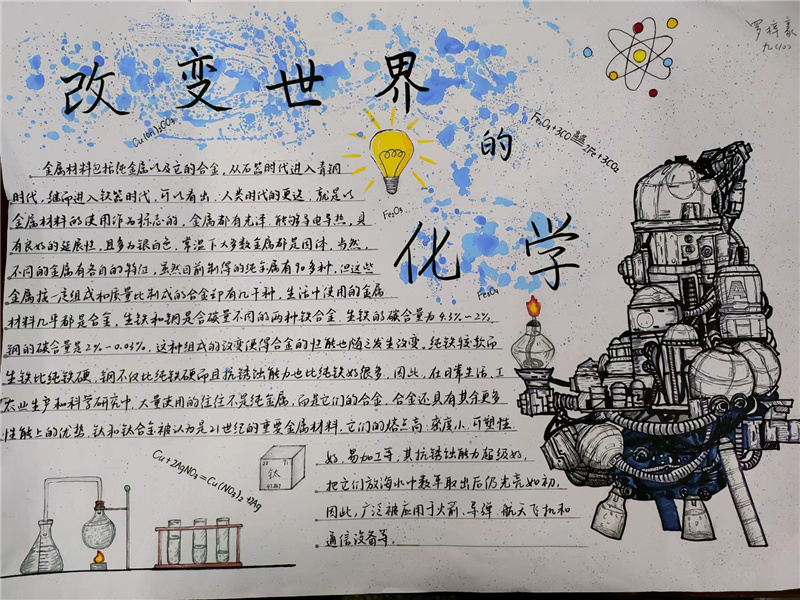 罗梓豪
九(10)
改变世界
的
化学
Cu(OH)₂CO₃
Fe₂O₃+3CO 高温 2Fe+3CO₂
Fe₂O₃
Fe₃O₄
金属材料包括纯金属以及它的合金，从石器时代进入青铜
时代，继而进入铁器时代，可以看出，人类时代的更迭，就是以
金属材料的使用作为标志的，金属都有光泽，能够导电导热，具
有很好的延展性，且多为银白色，常温下大多数金属都是固体，当然，
不同的金属有各自的特征，虽然目前制得的纯金属有90多种，但这些
金属按一定组成和质量比制成的合金却有几千种，生活中使用的金属
材料几乎都是合金，生铁和钢是含碳量不同的两种铁合金，生铁的碳含量为4.3%~2%
钢的碳含量是2%~0.03%，这种组成的改变使得合金的性能也随之发生改变。纯铁较软而
生铁比纯铁硬，钢不仅比纯铁硬而且抗锈蚀能力也比纯铁好很多，因此，在日常生活，工
农业生产和科学研究中，大量使用的往往不是纯金属，而是它们的合金，合金还具有其余更多
性能上的优势，钛和钛合金被认为是21世纪的重要金属材料，它们的熔点高，密度小，可塑性
好，易加工等，其抗锈蚀能力超级好，
把它们放海水中数年取出后仍光亮如初，
因此，广泛被应用于火箭、导弹、航天飞机和
通信设备等。
Cu+2AgNO₃=Cu(NO₃)₂+2Ag
22 Ti
钛
47.867